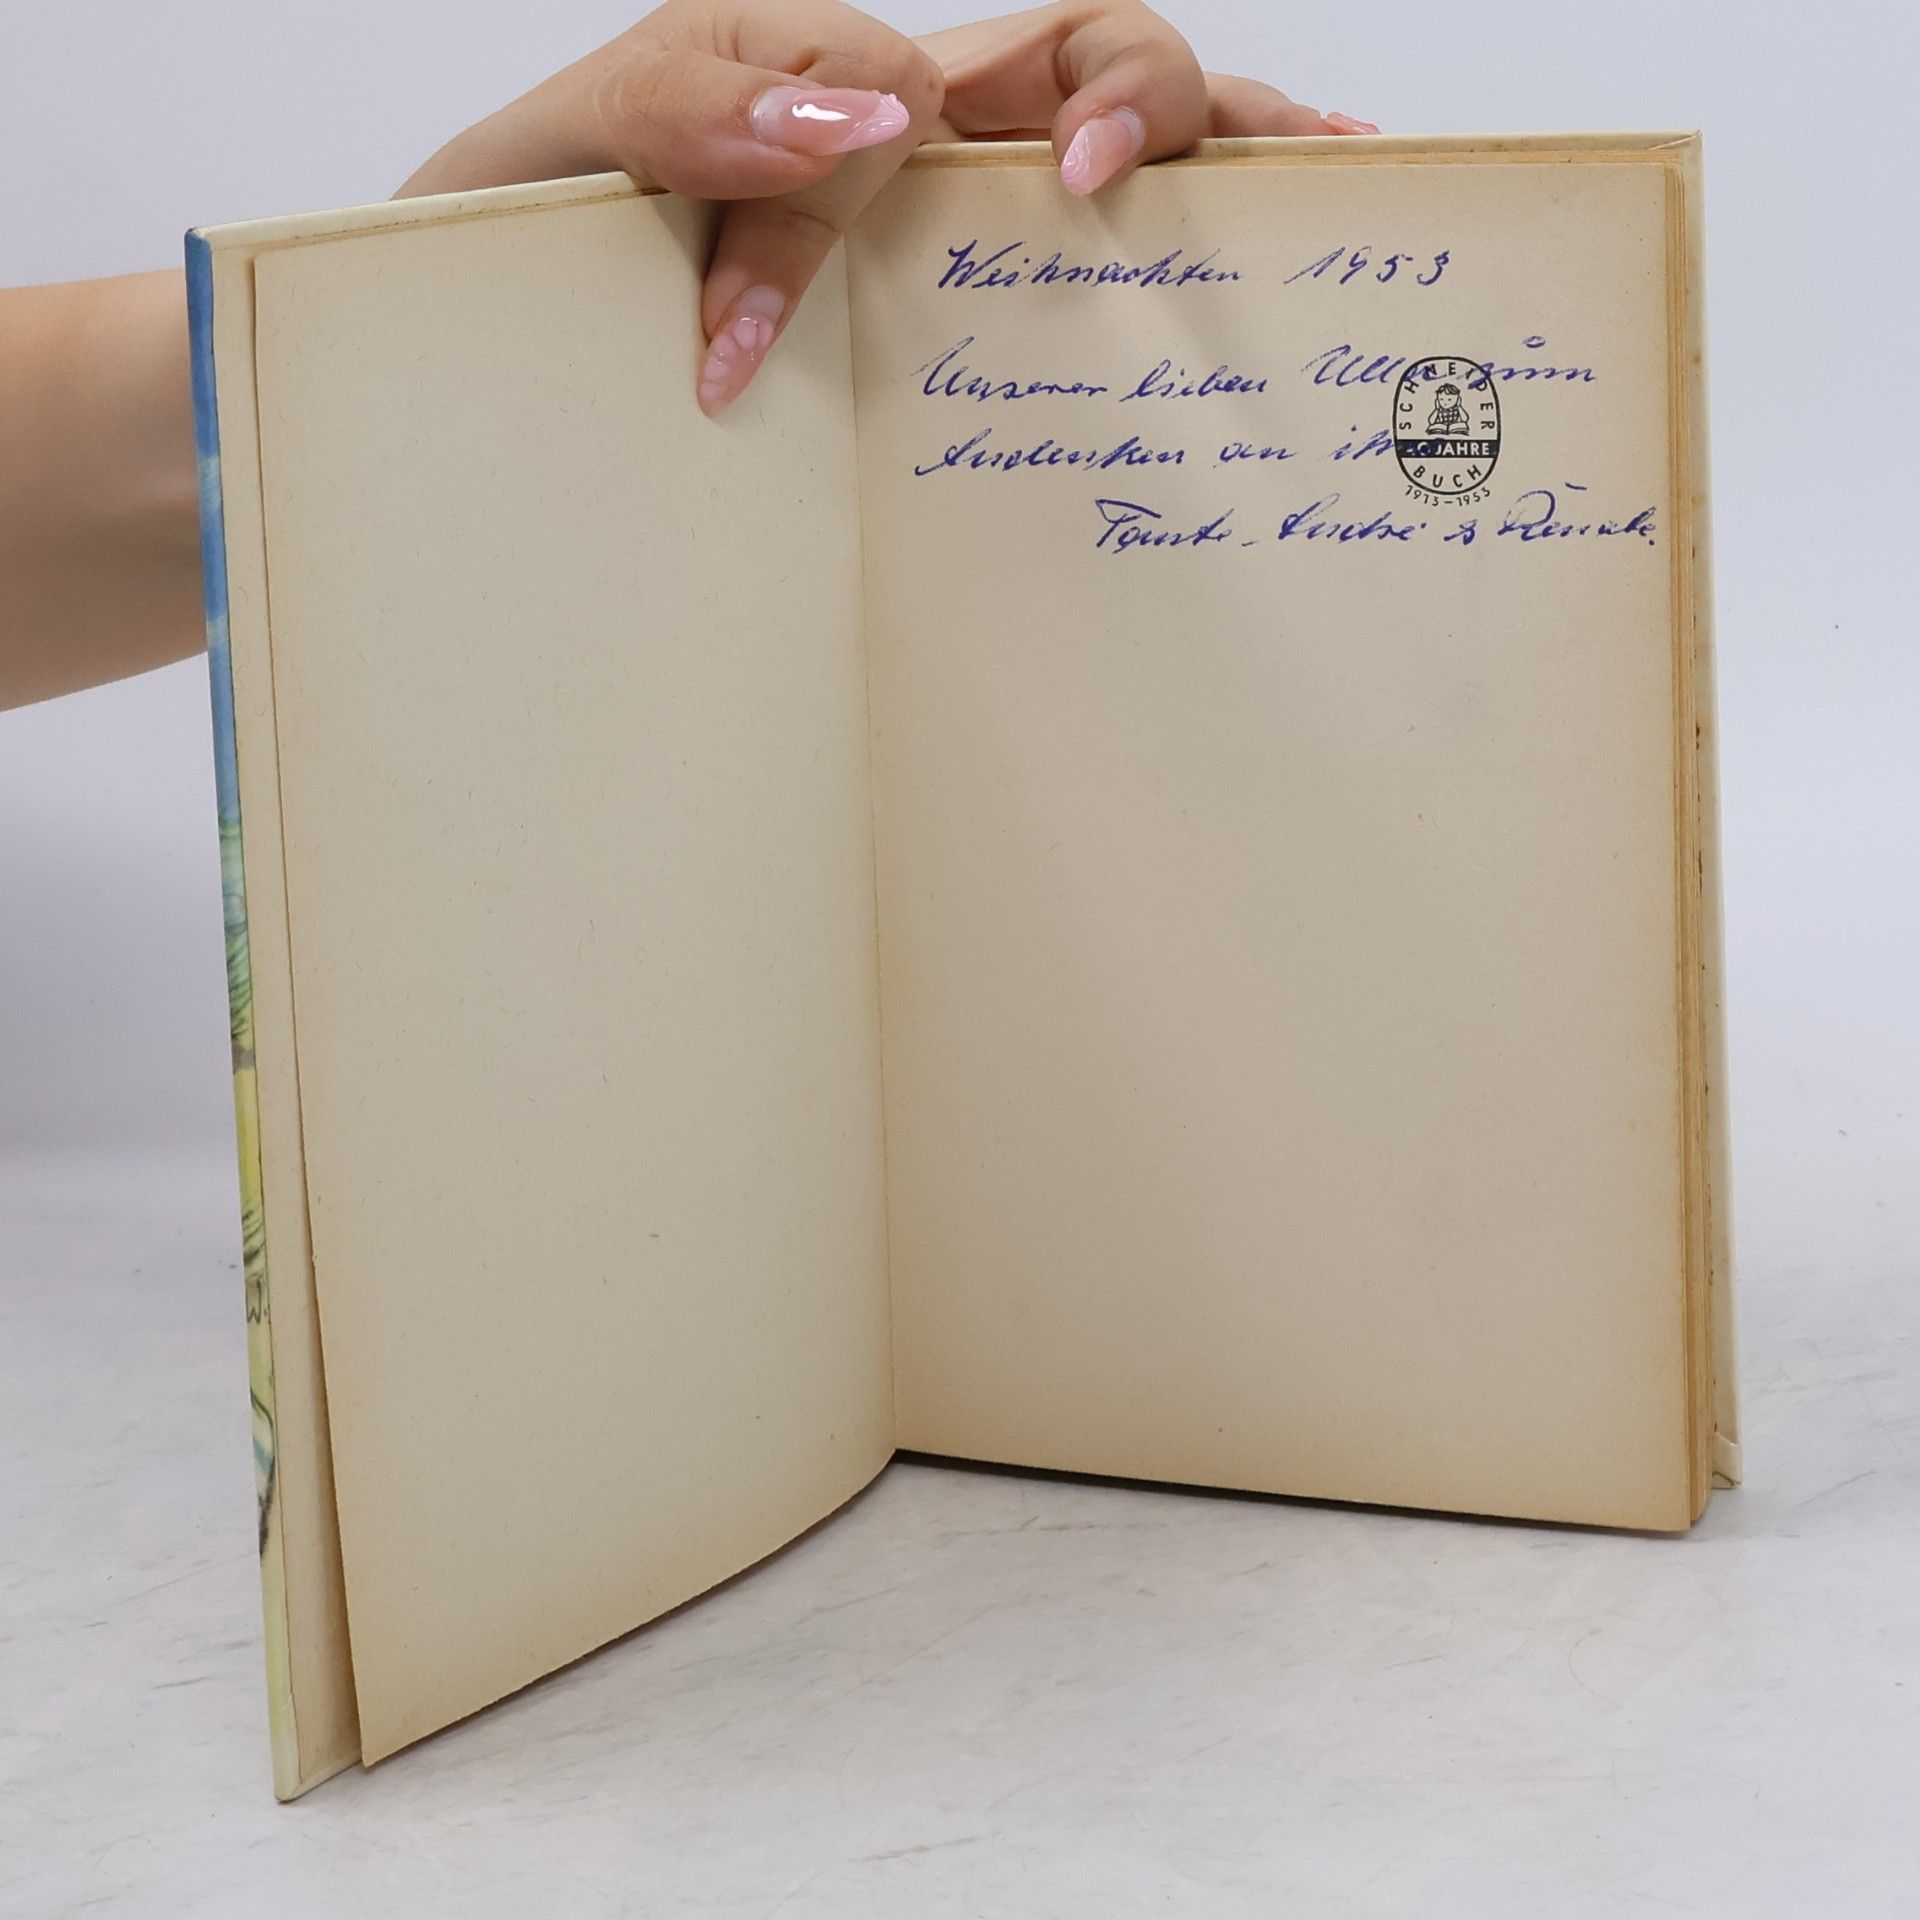 Weihnachten 1953
Unserer lieben Ulla zum
Andenken an ihre
Tante Andre & Renate.
SCHNEIDER
40 JAHRE
BUCH
1913-1953